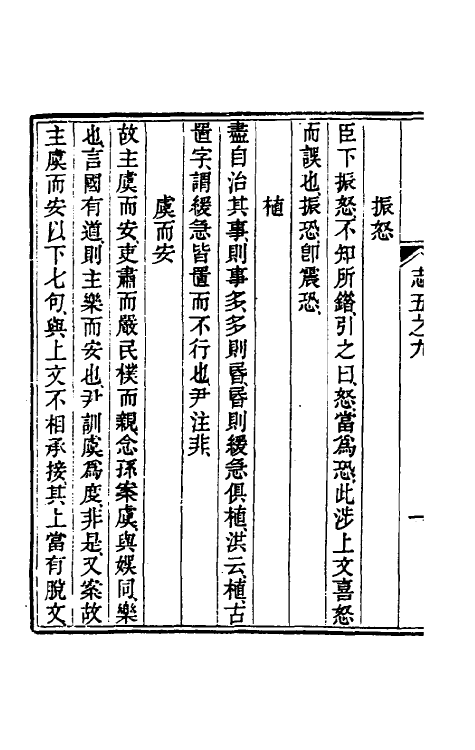 志五之九
一
振怒
臣下振怒、不知所錯、引之曰、怒、當爲恐、此涉上文喜怒
而誤也、振恐、卽震恐、
植
盡自治其事、則事多、多則昬、昬則緩急俱植、洪云、植、古
置字、謂緩急皆置而不行也、尹注非、
虞而安
故主虞而安、吏肅而嚴、民樸而親、念孫案、虞、與娛同、樂
也、言國有道、則主樂而安也、尹訓虞爲度、非是、又案、故
主虞而安以下七句、與上文不相承接、其上當有脫文、